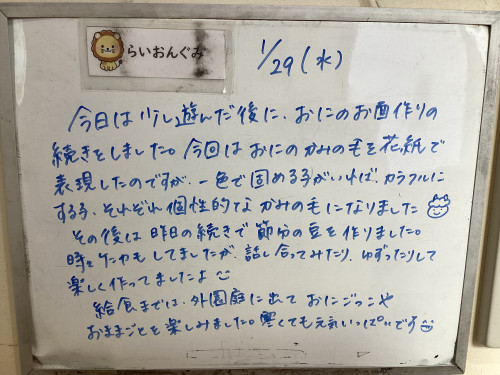 らいおんぐみ
1/29(水)
今日は少し遊んだ後に、おにのお面作りの
続きをしました。今回はおにのかみの毛を花紙で
表現したのですが、一色で固める子がいれば、カラフルに
する子、それぞれ個性的なかみの毛になりました
その後は昨日の続きで節分の豆を作りました。
時々ケンカもしてましたが、話し合ってみたり、ゆずったりして
楽しく作ってましたよ
給食までは、外園庭に出ておにごっこや
おままごとを楽しみました。寒くても元気いっぱいです